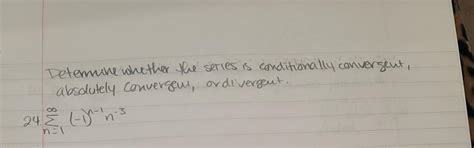 Determine whether the series is conditionally convergent,
absolutely convergent, or divergent.
24. ∞∑n=1 (-1)^n-1 n^-3